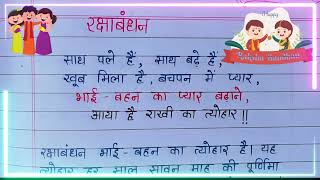 रक्षाबंधन
साथ पले हैं, साथ बढ़े हैं,
खूब मिला है, बचपन में प्यार,
भाई-बहन का प्यार बढ़ाने,
आया है राखी का त्योहार!!
रक्षाबंधन भाई-बहन का त्योहार है। यह
त्योहार हर साल सावन माह की पूर्णिमा